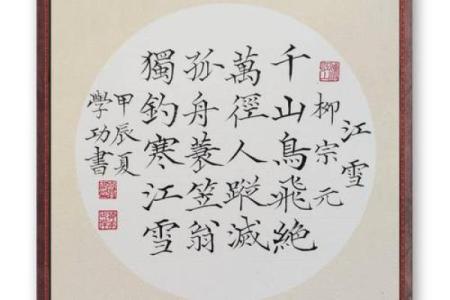 江雪
柳宗元
千山鳥飛絶
萬徑人蹤滅
孤舟蓑笠翁
獨釣寒江雪
甲辰夏
學功書